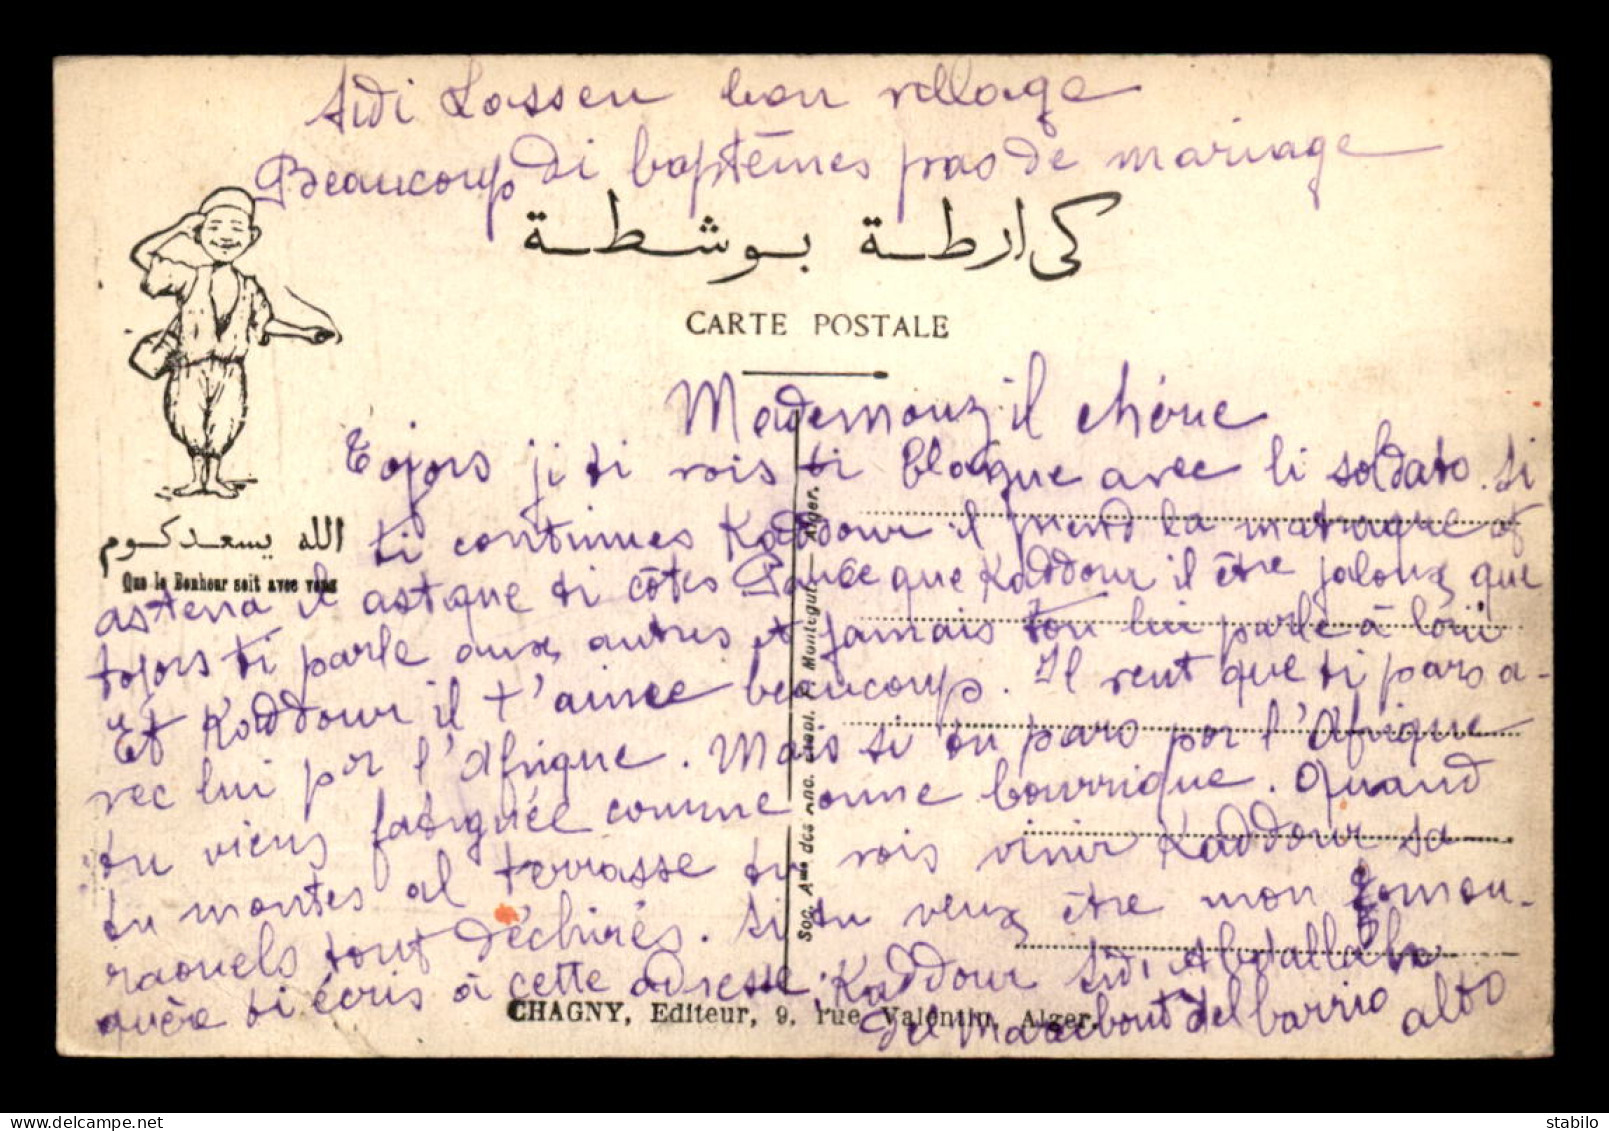 Sidi Lassen bon village
Beaucoup di baptêmes pas de mariage
كارطة بوشطة
CARTE POSTALE
Mademouzil chérie
Tojors ji ti vois ti blague avec li soldats. Si
ti continues Kaddour il prend la matraque et
الله يسعدكوم
Que le Bonheur soit avec vous
astena il astique ti côtes Pance que Kaddour il être jaloux que
tojors ti parle aux autres et jamais tou lui parle à loui
Et Kaddour il t'aimee beaucoup. Il veut que ti pars a-
vec lui por l'Afrique. Mais si tu pars por l'Afrique
tu viens fatiguée comme oune bourrique. Quand
tu montes al terrasse tu vois vinir Kaddour sa
raouels tout déchirés. Si tu veux être mon
quère ti écris à cette adresse. Kaddour Sidi Abdallah
del Marabout del barrio alto
CHAGNY, Editeur, 9, rue Valentin, Alger.
Soc. Ame des Anc. Etabl. P. Montégut. — Alger.
stabilo